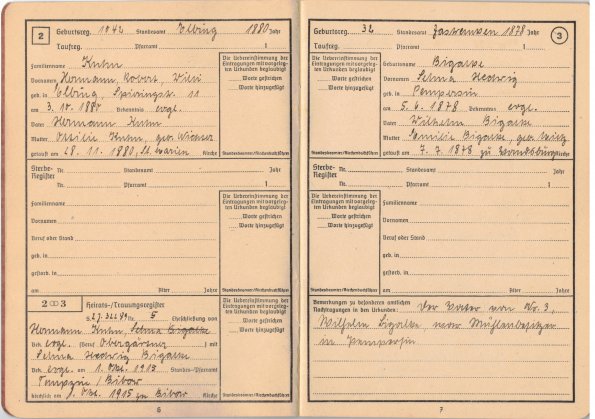 2
Geburtsreg. 1042 Standesamt Elbing 1880 Jahr
Taufreg. Pfarramt 1
Familienname Kuhn
Vornamen Hermann Robert, Willi
geb. in Elbing, Spieringstr. 11
am 3. 10. 1880 Bekenntnis evgl.
Vater Hermann Kuhn
Mutter Ottilie Kuhn, geb.
getauft am 28. 11. 1880, St. Marien Kirche
Die Uebereinstimmung der
Eintragungen mit vorgeleg-
ten Urkunden beglaubigt
Worte gestrichen
Worte hinzugefügt
Standesbeamter/Kirchenbuchführer
Sterbe-
Register
Nr. Standesamt Jahr
Pfarramt 1
Familienname
Vornamen
Beruf oder Stand
geb. in
gestorb. in
am Alter Jahre
Die Uebereinstimmung der
Eintragungen mit vorgeleg-
ten Urkunden beglaubigt
Worte gestrichen
Worte hinzugefügt
Standesbeamter/Kirchenbuchführer
2 ∞ 3 Heirats-/Trauungsregister
Nr. 5 Eheschließung von
Hermann Kuhn, Selma Bigalke
Bek. evgl. (Beruf Obergärtner) mit
Selma Hedwig Bigalke
Bek. evgl. am 1. Okt. 1915 Standes-/Pfarramt
/ Bibow
kirchlich am 1. Okt. 1915 zu Bibow Kirche
Die Uebereinstimmung der
Eintragungen mit vorgeleg-
ten Urkunden beglaubigt
Worte gestrichen
Worte hinzugefügt
Standesbeamter/Kirchenbuchführer
6
3
Geburtsreg. 32 Standesamt 1878 Jahr
Taufreg. Pfarramt 1
Familienname Bigalke
Vornamen Selma Hedwig
geb. in Pempersin
am 5. 6. 1878 Bekenntnis evgl.
Vater Wilhelm Bigalke
Mutter Familie Bigalke, geb.
getauft am 7. 7. 1878 zu Vandsburg Kirche
Die Uebereinstimmung der
Eintragungen mit vorgeleg-
ten Urkunden beglaubigt
Worte gestrichen
Worte hinzugefügt
Standesbeamter/Kirchenbuchführer
Sterbe-
Register
Nr. Standesamt Jahr
Pfarramt 1
Familienname
Vornamen
Beruf oder Stand
geb. in
gestorb. in
am Alter Jahre
Die Uebereinstimmung der
Eintragungen mit vorgeleg-
ten Urkunden beglaubigt
Worte gestrichen
Worte hinzugefügt
Standesbeamter/Kirchenbuchführer
Bemerkungen zu besonderen amtlichen
Nachtragungen in den Urkunden: Der Vater von No. 3,
Wilhelm Bigalke, war Mühlenbesitzer
in Pempersin
7